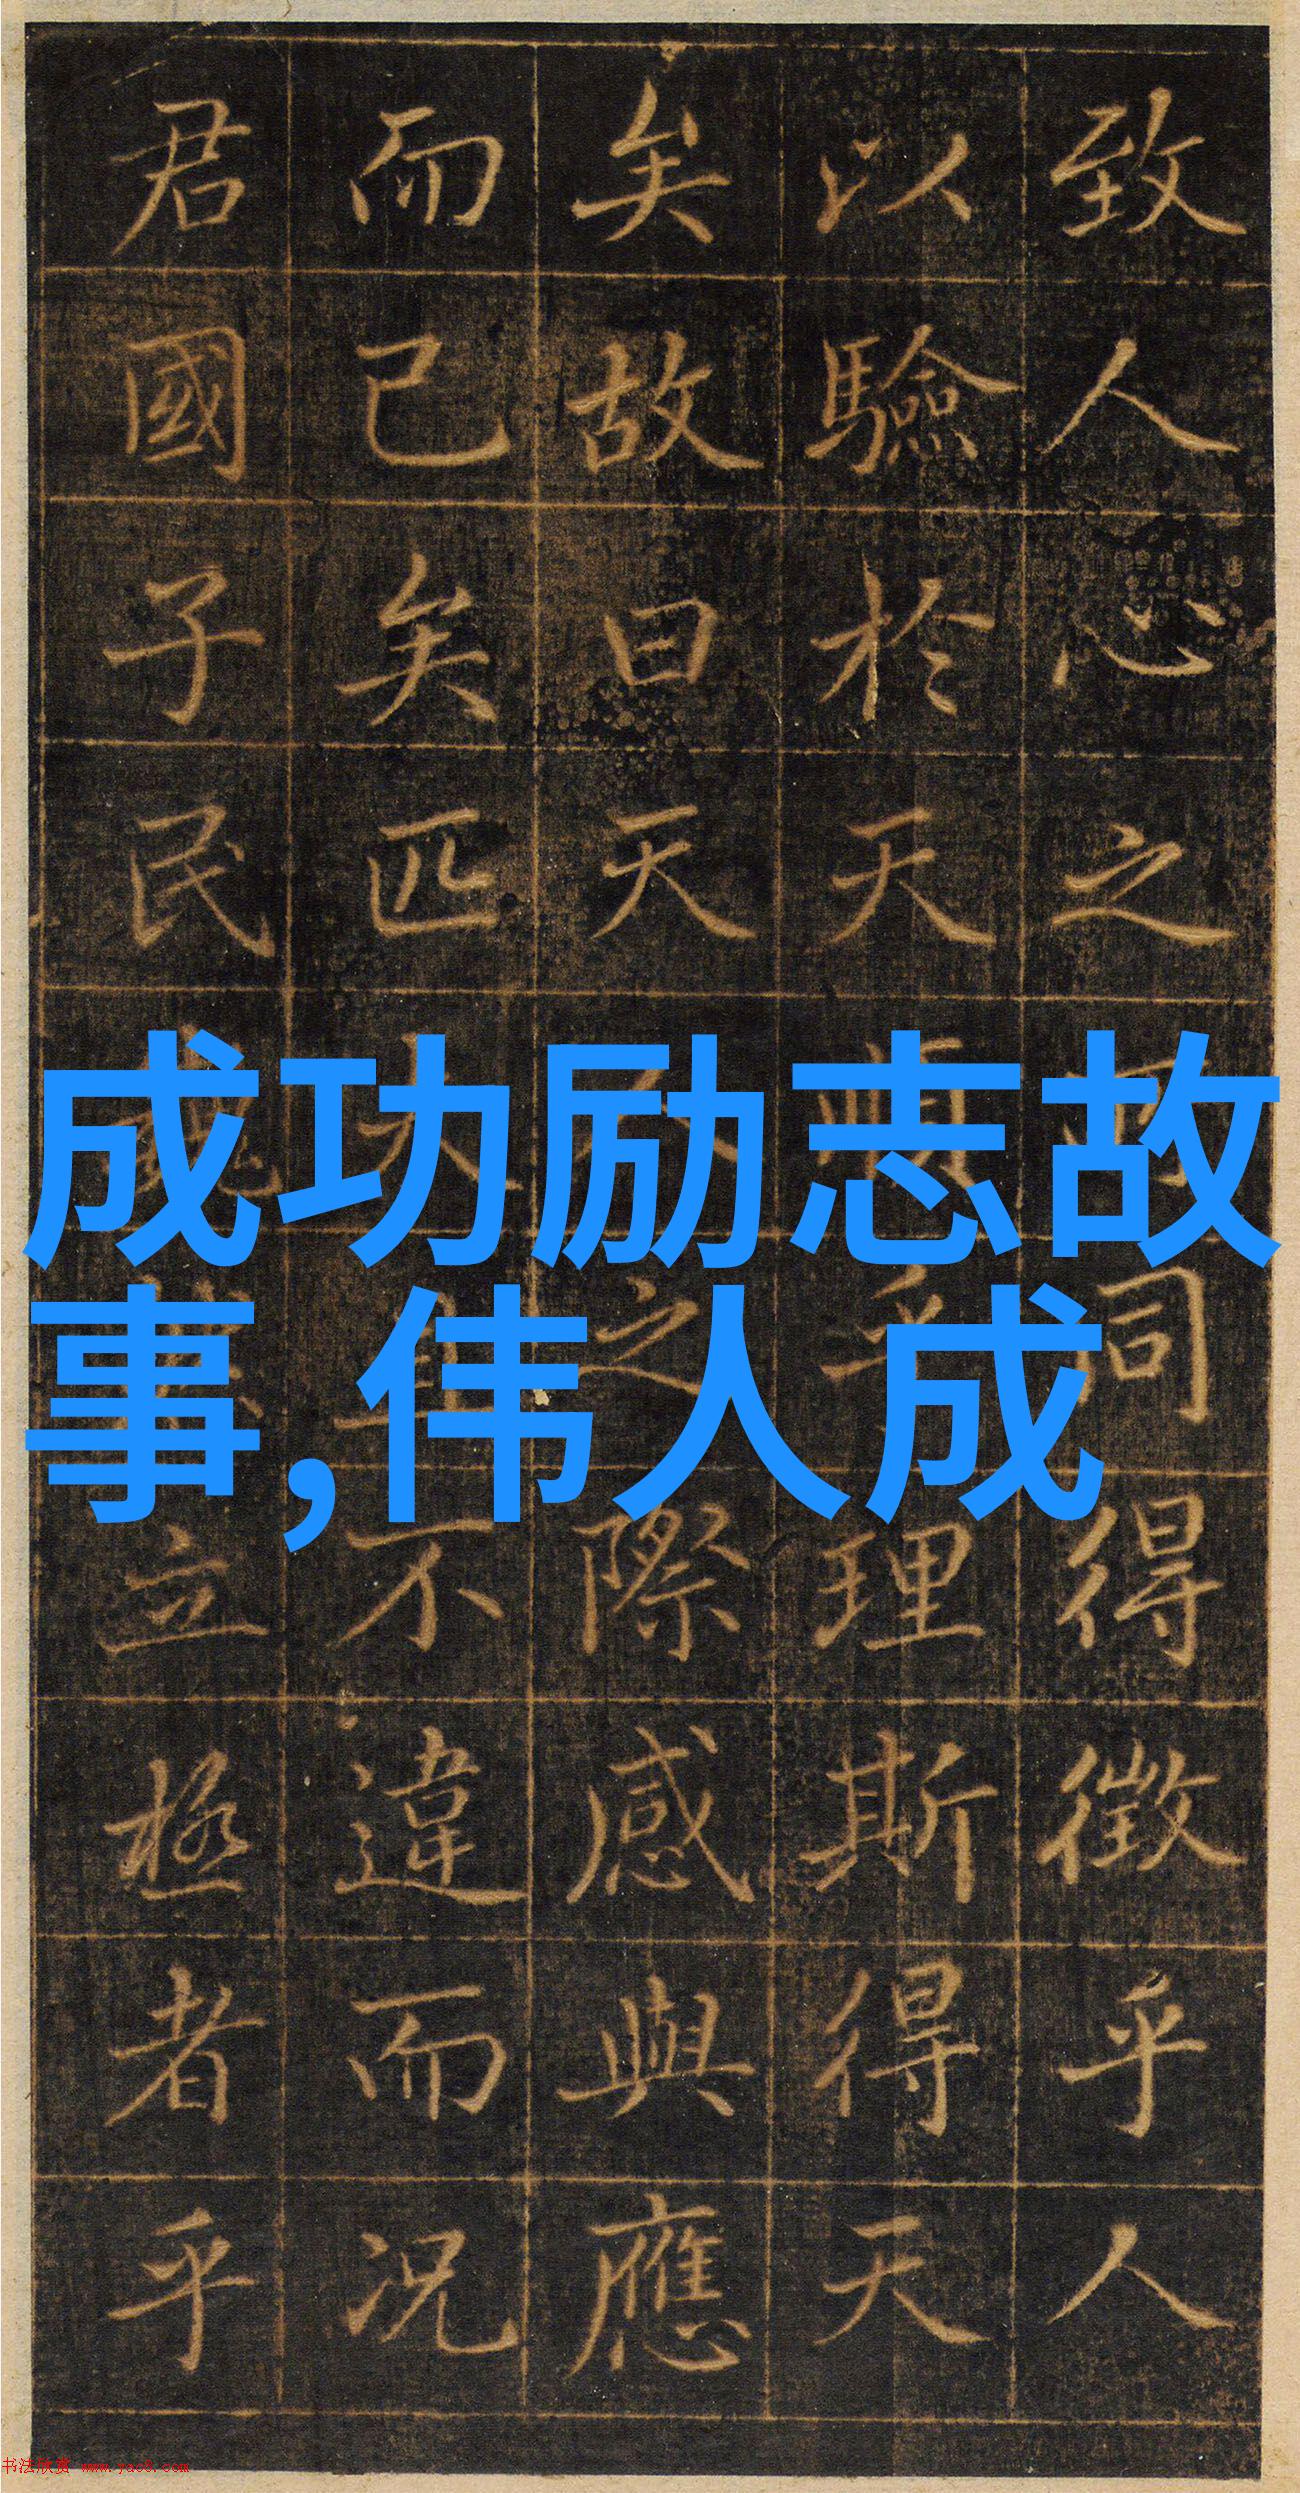 致人心之同得徵乎人
以驗於天順乎理斯得天
矣故曰天人之際感與應
而已矣匹夫且不違而況
君國子民立極者乎
成功励志故
事,伟人成
书法欣赏 www.yac8.com